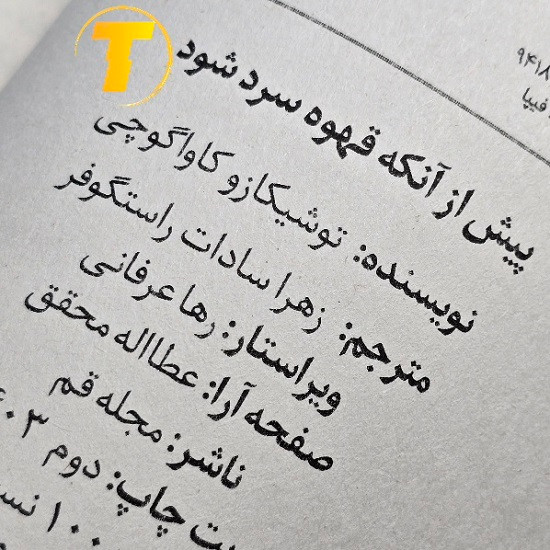 ۹۴۱۸
فیپا
پیش از آنکه قهوه سرد شود
نویسنده: توشیکازو کاواگوچی
مترجم: زهرا سادات راستگوفر
ویراستار: رها عرفانی
صفحه آرا: عطااله محقق
ناشر: مجله قم
چاپ: دوم